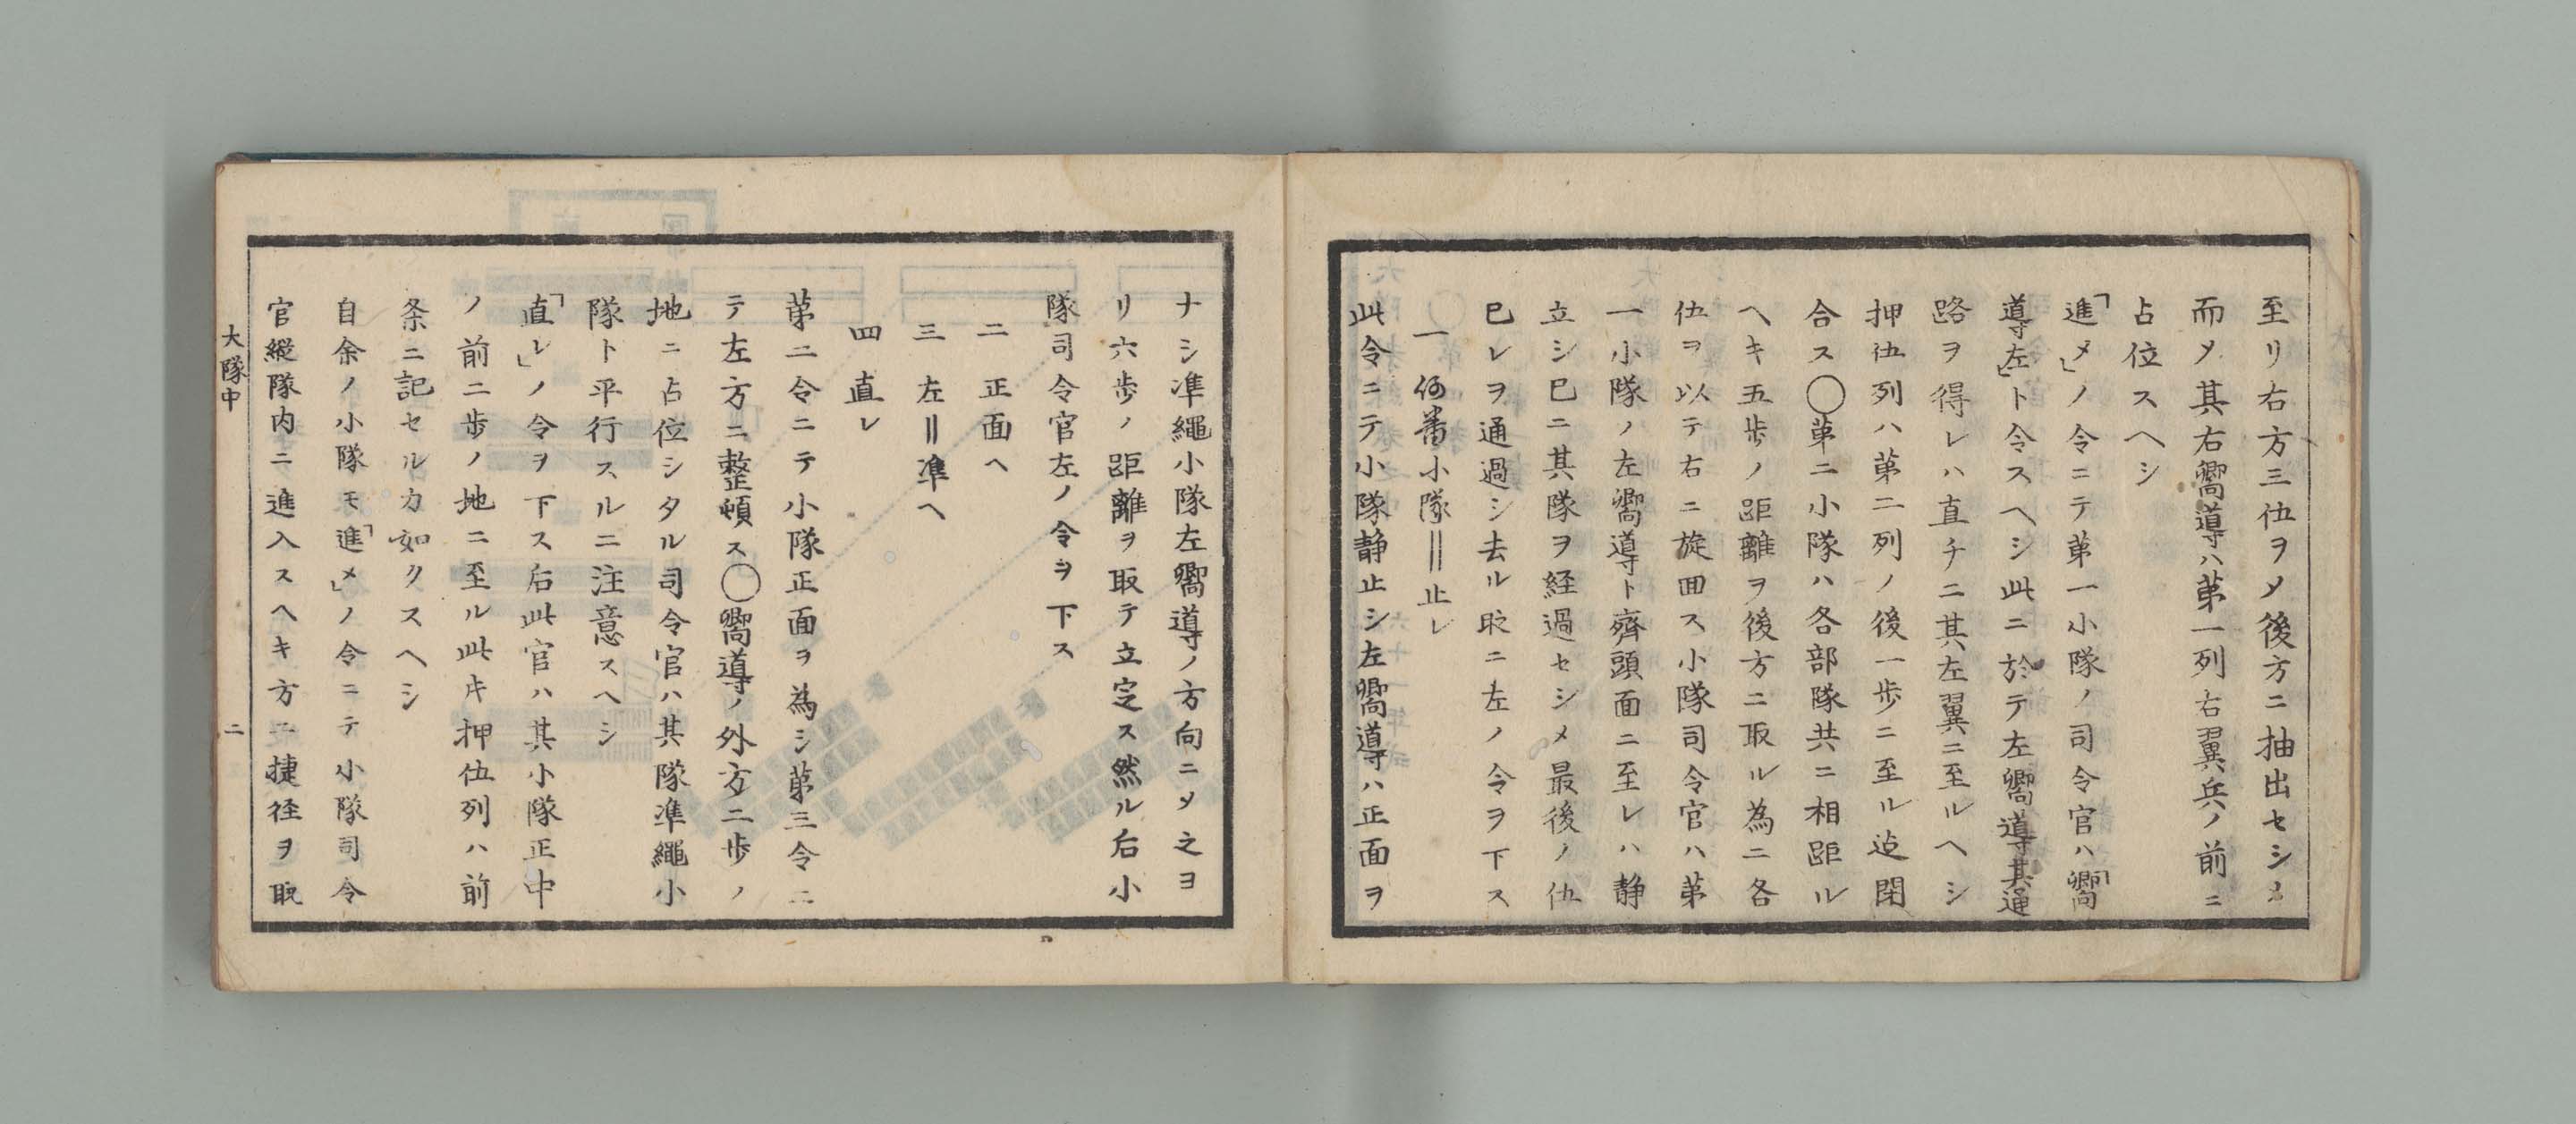 至リ右方三伍ヲ〆後方ニ抽出セシム
而〆其右嚮導ハ第一列右翼兵ノ前ニ
占位スヘシ
「進メ」ノ令ニテ第一小隊ノ司令官ハ「嚮
導左」ト令スヘシ此ニ於テ左嚮導其通
路ヲ得レハ直チニ其左翼ニ至ルヘシ
押伍列ハ第二列ノ後一歩ニ至ル迠閉
合ス〇第二小隊ハ各部隊共ニ相距ル
ヘキ五歩ノ距離ヲ後方ニ取ル為ニ各
伍ヲ以テ右ニ旋囬ス小隊司令官ハ第
一小隊ノ左嚮導ト齊頭面ニ至レハ静
立シ已ニ其隊ヲ経過セシメ最後ノ伍
已レヲ通過シ去ル時ニ左ノ令ヲ下ス
一 何番小隊‖止レ
此令ニテ小隊静止シ左嚮導ハ正面ヲ
ナシ準繩小隊左嚮導ノ方向ニ〆之ヨ
リ六歩ノ距離ヲ取テ立定ス然ル后小
隊司令官左ノ令ヲ下ス
二 正面ヘ
三 左‖準ヘ
四 直レ
第二令ニテ小隊正面ヲ為シ第三令ニ
テ左方ニ整頓ス〇嚮導ノ外方二歩ノ
地ニ占位シタル司令官ハ其隊準繩小
隊ト平行スルニ注意スヘシ
「直レ」ノ令ヲ下ス后此官ハ其小隊正中
ノ前二歩ノ地ニ至ル此時押伍列ハ前
条ニ記セルカ如クスヘシ
自余ノ小隊モ「進メ」ノ令ニテ小隊司令
官縦隊内ニ進入スヘキ方ニ捷径ヲ取
大隊中 二